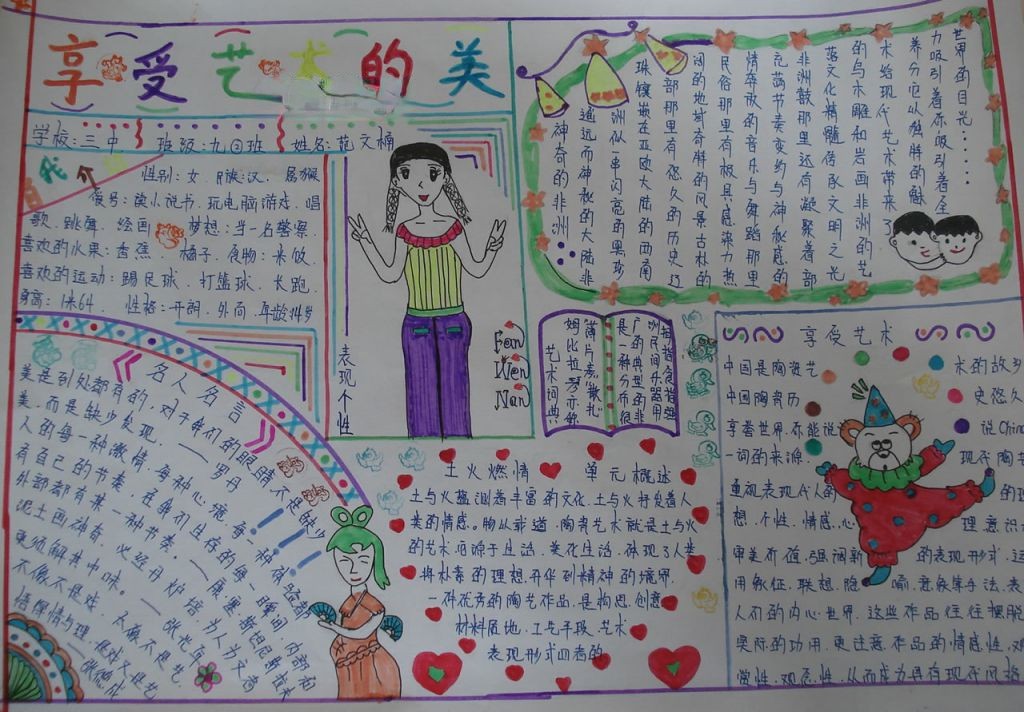 享受艺术的美
学校:三中 班级:九四班 姓名:范文楠
我
性别:女 民族:汉 属猴
爱号:读小说书、玩电脑游戏、唱
歌、跳舞、绘画 梦想:当一名警察
喜欢的水果:香蕉、橘子、食物:米饭
喜欢的运动:踢足球、打篮球、长跑
身高:1米64 性格:开朗、外向
表现个性
Fan
Wen
Nan
世界的目光……
力吸引着你吸引着全
养分它从独胖的魅
术给现代艺术带来了
的乌木雕和岩画非洲的艺
落文化精髓传承文明之光
非洲鼓那里还有凝聚着部
充满节奏变约与神秘感的
情奔放的音乐与舞蹈那里
民俗那里有极具感染力热
阔的地域奇胖的风景古朴的
部那里有悠久的历史辽
珠镶嵌在亚欧大陆的西南
洲似一串闪亮的黑珍
遥远而神秘的大陆非
神奇的非洲
名人名言
美是到处都有的,对于我们的眼睛不是缺少
美,而是缺少发现。——罗丹
人的每一种激情,每种心境,每一种体验都
有自己的节奏,在我们生存的每一瞬间,内部和
外部都有某一种节奏。
泥土画神奇,必经丹炉培
更须解其中味。
不像不是戏,太像不是艺
悟得情与理,是戏又是艺
洲民间乐器用
广的典型的非
是一种分布很
薄片奏散扎
姆比拉琴亦称
艺术词典
土火燃情 单元概述
土与火蕴涵着丰富的文化,土与火抒发着人
类的情感。物以载道,陶瓷艺术就是土与火
的艺术,它源于生活、美化生活,体现了人类
将朴素的理想升华到精神的境界,
一件优秀的陶艺作品,是构思、创意
材料质地、工艺手段、艺术
表现形式四者的
享受艺术
中国是陶瓷艺 术的故乡
中国陶瓷历 史悠久
享誉世界,不能说 说China
一词的来源。 现代陶艺
重视表现代人的 的理
想、个性、情感、心 理意识
审美价值,强调新 的表现形式,运
用象征、联想、隐 喻、意象等手法,表
人们的内心世界,这些作品往往摆脱
实际的功用,更注意作品的情感性、观
赏性、观念性,从而成为具有现代风格